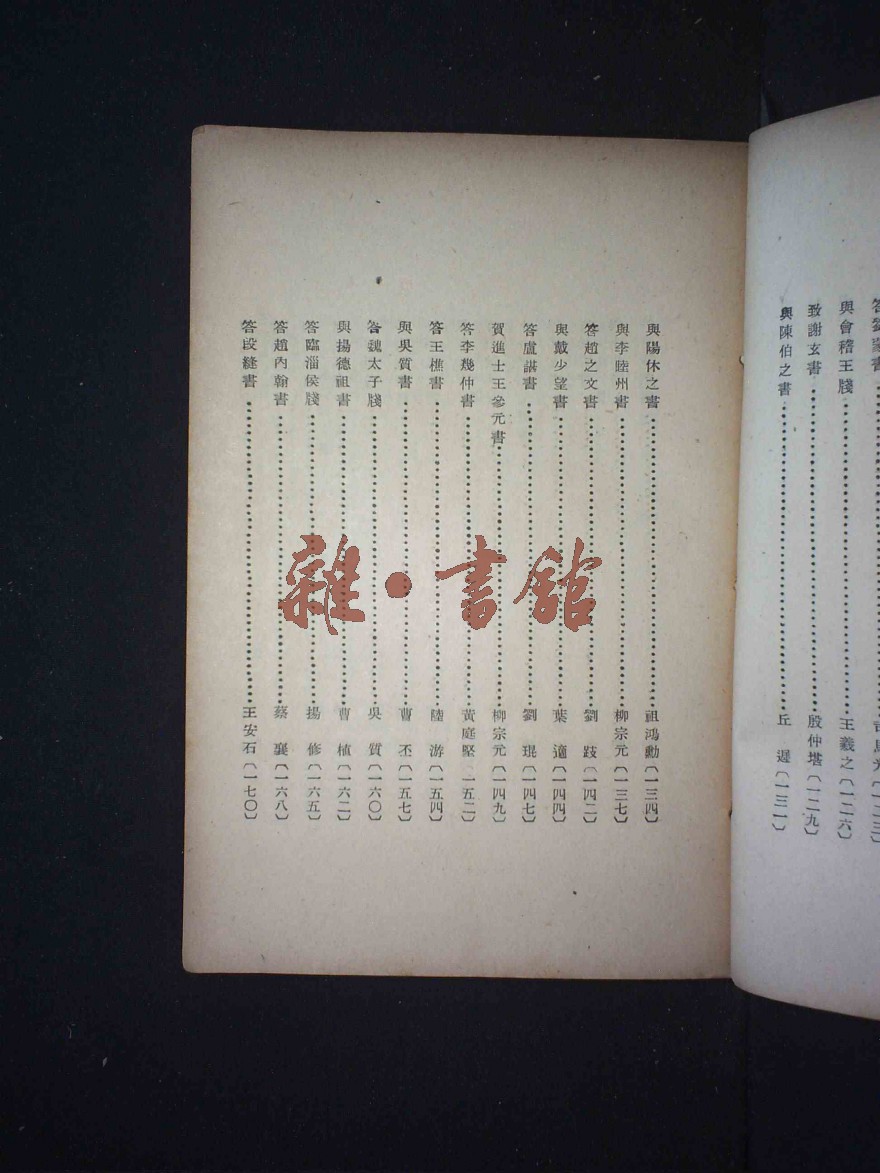 與會稽王牋……王羲之〔一二六〕
致謝玄書……殷仲堪〔一二九〕
與陳伯之書……丘遲〔一三一〕
與陽休之書……祖鴻勳〔一三四〕
與李睦州書……柳宗元〔一三七〕
答趙之文書……劉跂〔一四二〕
與戴少望書……葉適〔一四四〕
答盧諶書……劉琨〔一四七〕
賀進士王參元書……柳宗元〔一四九〕
答李幾仲書……黃庭堅〔一五二〕
答王樵書……陸游〔一五四〕
與吳質書……曹丕〔一五七〕
答魏太子牋……吳質〔一六〇〕
與揚德祖書……曹植〔一六二〕
答臨淄侯牋……揚修〔一六五〕
答趙內翰書……蔡襄〔一六八〕
答段縫書……王安石〔一七〇〕
雜·書館